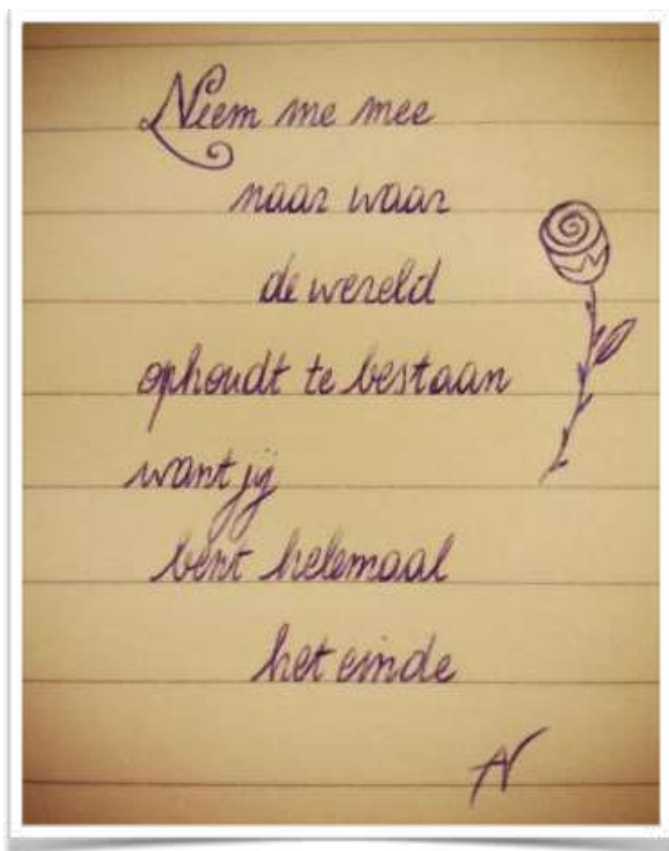 Neem me mee
naar waar
de wereld
ophoudt te bestaan
want jij
bent helemaal
het einde